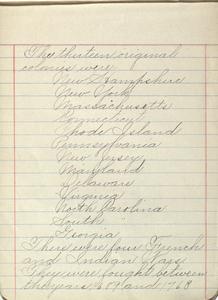 The thirteen original
colonies were
New Hampshire
New York
Massachusetts
Connecticut
Rhode Island
Pennsylvania
New Jersey
Maryland
Delaware
Virginia
North Carolina
South "
Georgia
There were four French
and Indian Wars
They were fought between
the years 1689 and 1763